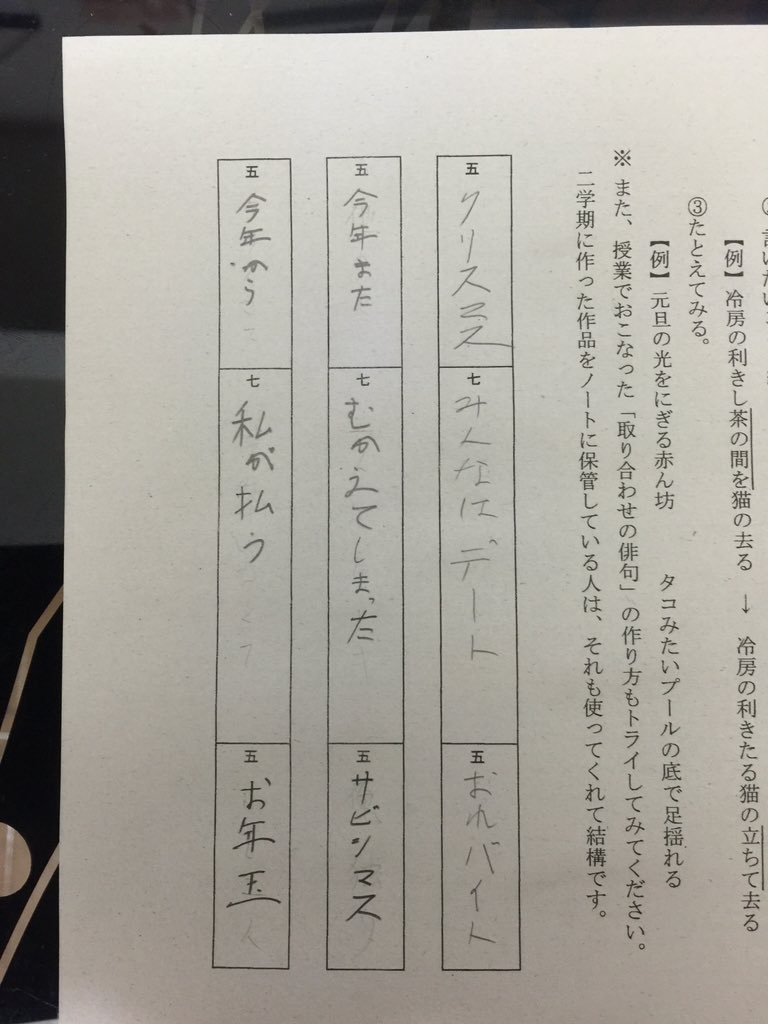 【例】冷房の利きし茶の間を猫の去る　→　冷房の利きたる猫の立ちて去る
③たとえてみる。
【例】元旦の光をにぎる赤ん坊　　タコみたいプールの底で足揺れる
※また、授業でおこなった「取り合わせの俳句」の作り方もトライしてみてください。
二学期に作った作品をノートに保管している人は、それも使ってくれて結構です。
五 クリスマス 七 みんなはデート 五 おれバイト
五 今年また 七 むかえてしまった 五 サビシマス
五 今年から 七 私が払う 五 お年玉